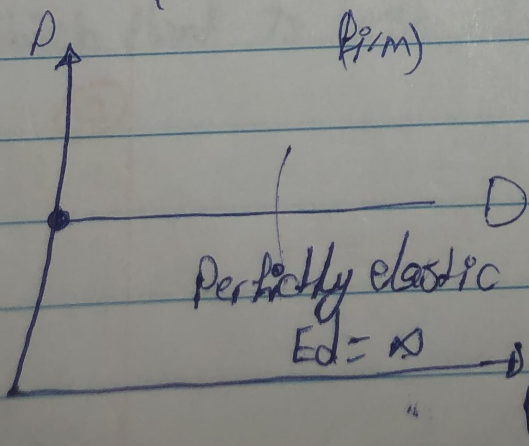 P (Firm)
D
Perfectly elastic
Ed = ∞